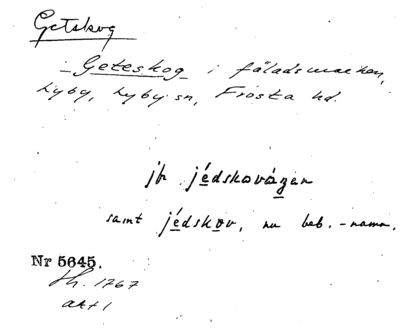 Getskog
– Geteskog i fäladsmarken,
Lyby, Lyby sn, Frosta hd.
jfr jédsková̱gen
samt jédskov, nu beb.-namn.
Nr 5645.
Sk. 1767
akt 1